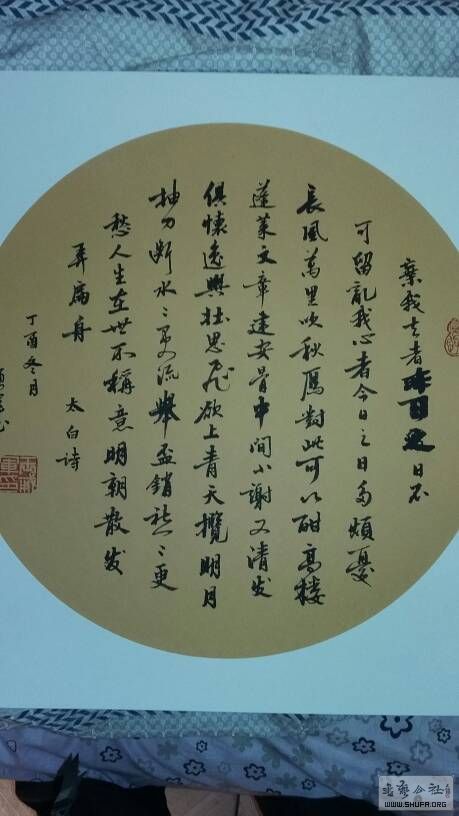 棄我去者昨日之日不
可留亂我心者今日之日多煩憂
長風萬里吹秋雁對此可以酣高楼
蓬萊文章建安骨中間小謝又清发
俱懷逸興壯思飛欲上青天攬明月
抽刀断水〻更流舉盃銷愁〻更
愁人生在世不稱意明朝散发
弄扁舟 太白詩
丁酉冬月
WWW.SHUFA.ORG